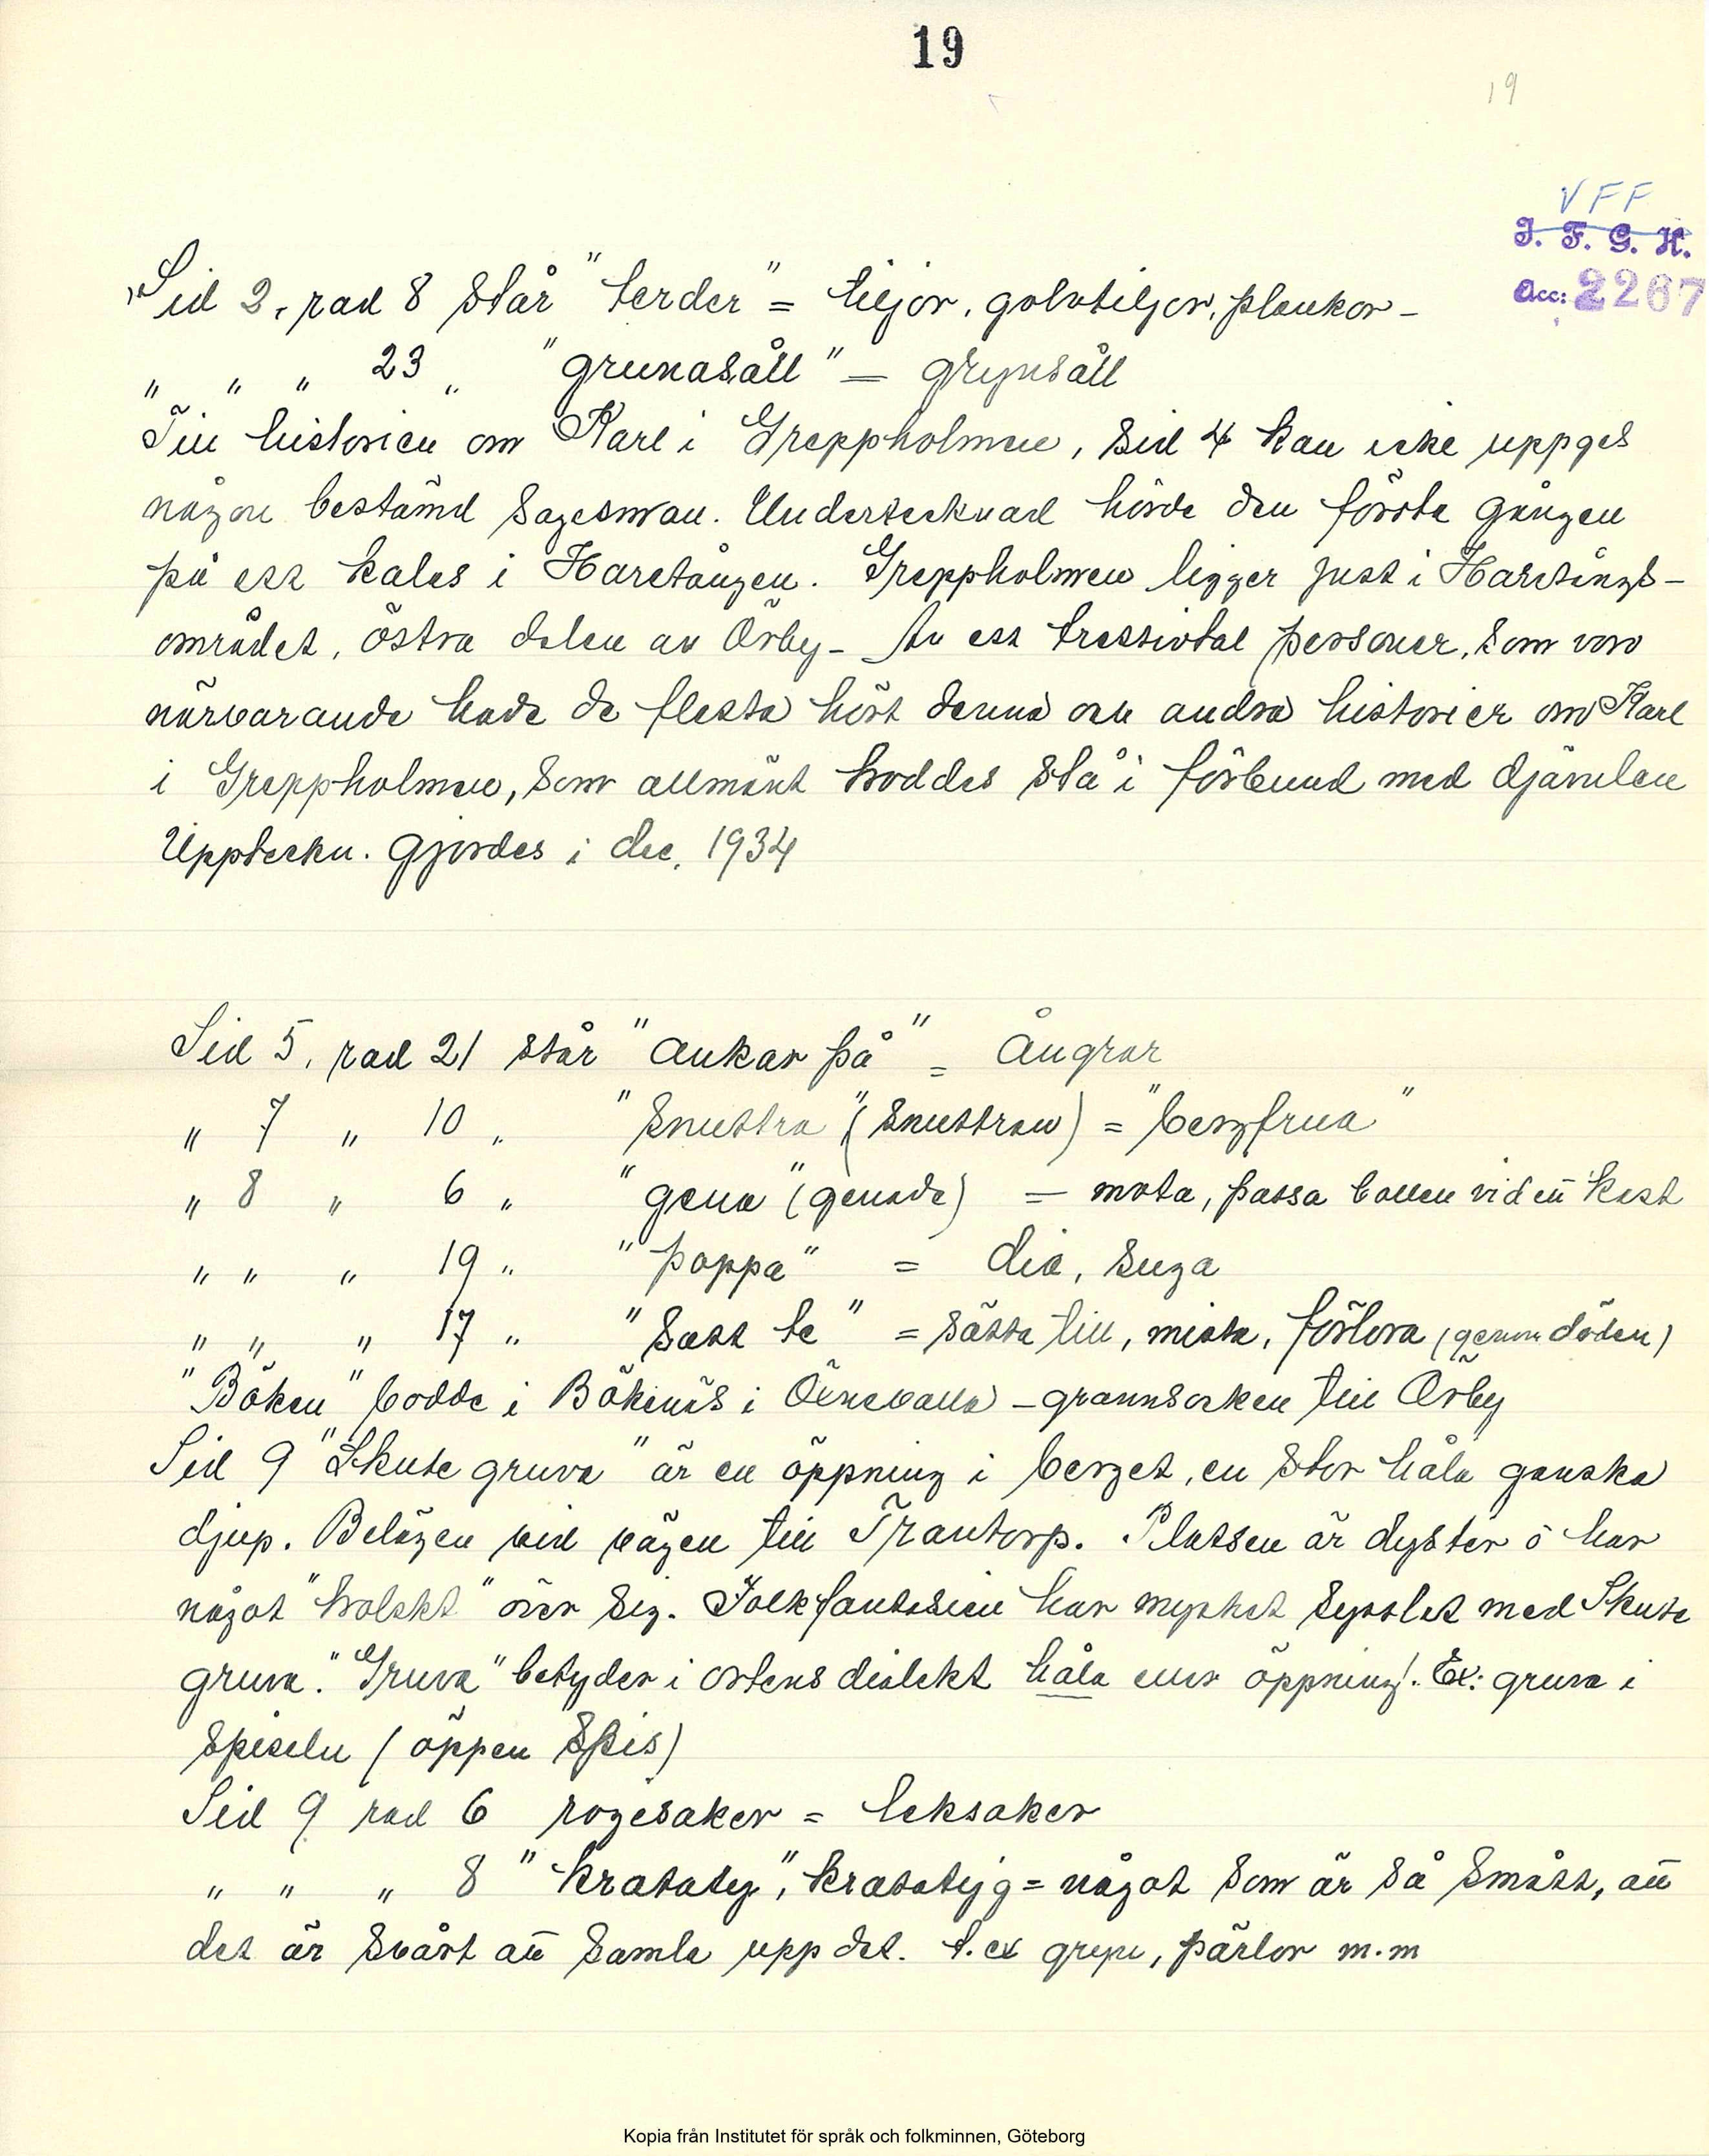 19
19
VFF
I. F. G. H.
Acc: 2267
Sid 2, rad 8 står "terder" = tiljor, golvtiljor, plankor –
" " " 23 " "grunasåll" = grynsåll
Till historien om Karl i Greppholmen, sid 4 kan icke uppges
någon bestämd sagesman. Undertecknad hörde den första gången
på ett kalas i Haretången. Greppholmen ligger just i Haretångs-
området, östra delen av Örby – Av ett trettiotal personer, som voro
närvarande hade de flesta hört denna och andra historier om Karl
i Greppholmen, som allmänt troddes stå i förbund med djävulen
Uppteckn. gjordes i dec. 1934
Sid 5, rad 21 står "ankar på" = Ångrar
" 7 " 10 " "Snustra" (snustran) = "bergfrua"
" 8 " 6 " "gena" (genade) = mota, passa bollen vid ett kast
" " " 19 " "pappa" = dia, suga
" " " 17 " "Satt te" = sätta till, mista, förlora (genom döden)
"Böken" bodde i Bökenäs i Öxnevalla – grannsocken till Örby
Sid 9 "Skute gruva" är en öppning i berget, en stor håla ganska
djup. Belägen vid vägen till Trantorp. Platsen är dyster o har
något "trolskt" över sig. Folkfantasien har mycket sysslat med Skute
gruva. "Gruva" betyder i ortens dialekt håla eller öppning. Ex: gruva i
spiseln (öppen spis)
Sid 9 rad 6 rogesaker = leksaker
" " " 8 "krataty", kratatyg = något som är så smått, att
det är svårt att samla upp det. t.ex gryn, pärlor m.m
Kopia från Institutet för språk och folkminnen, Göteborg